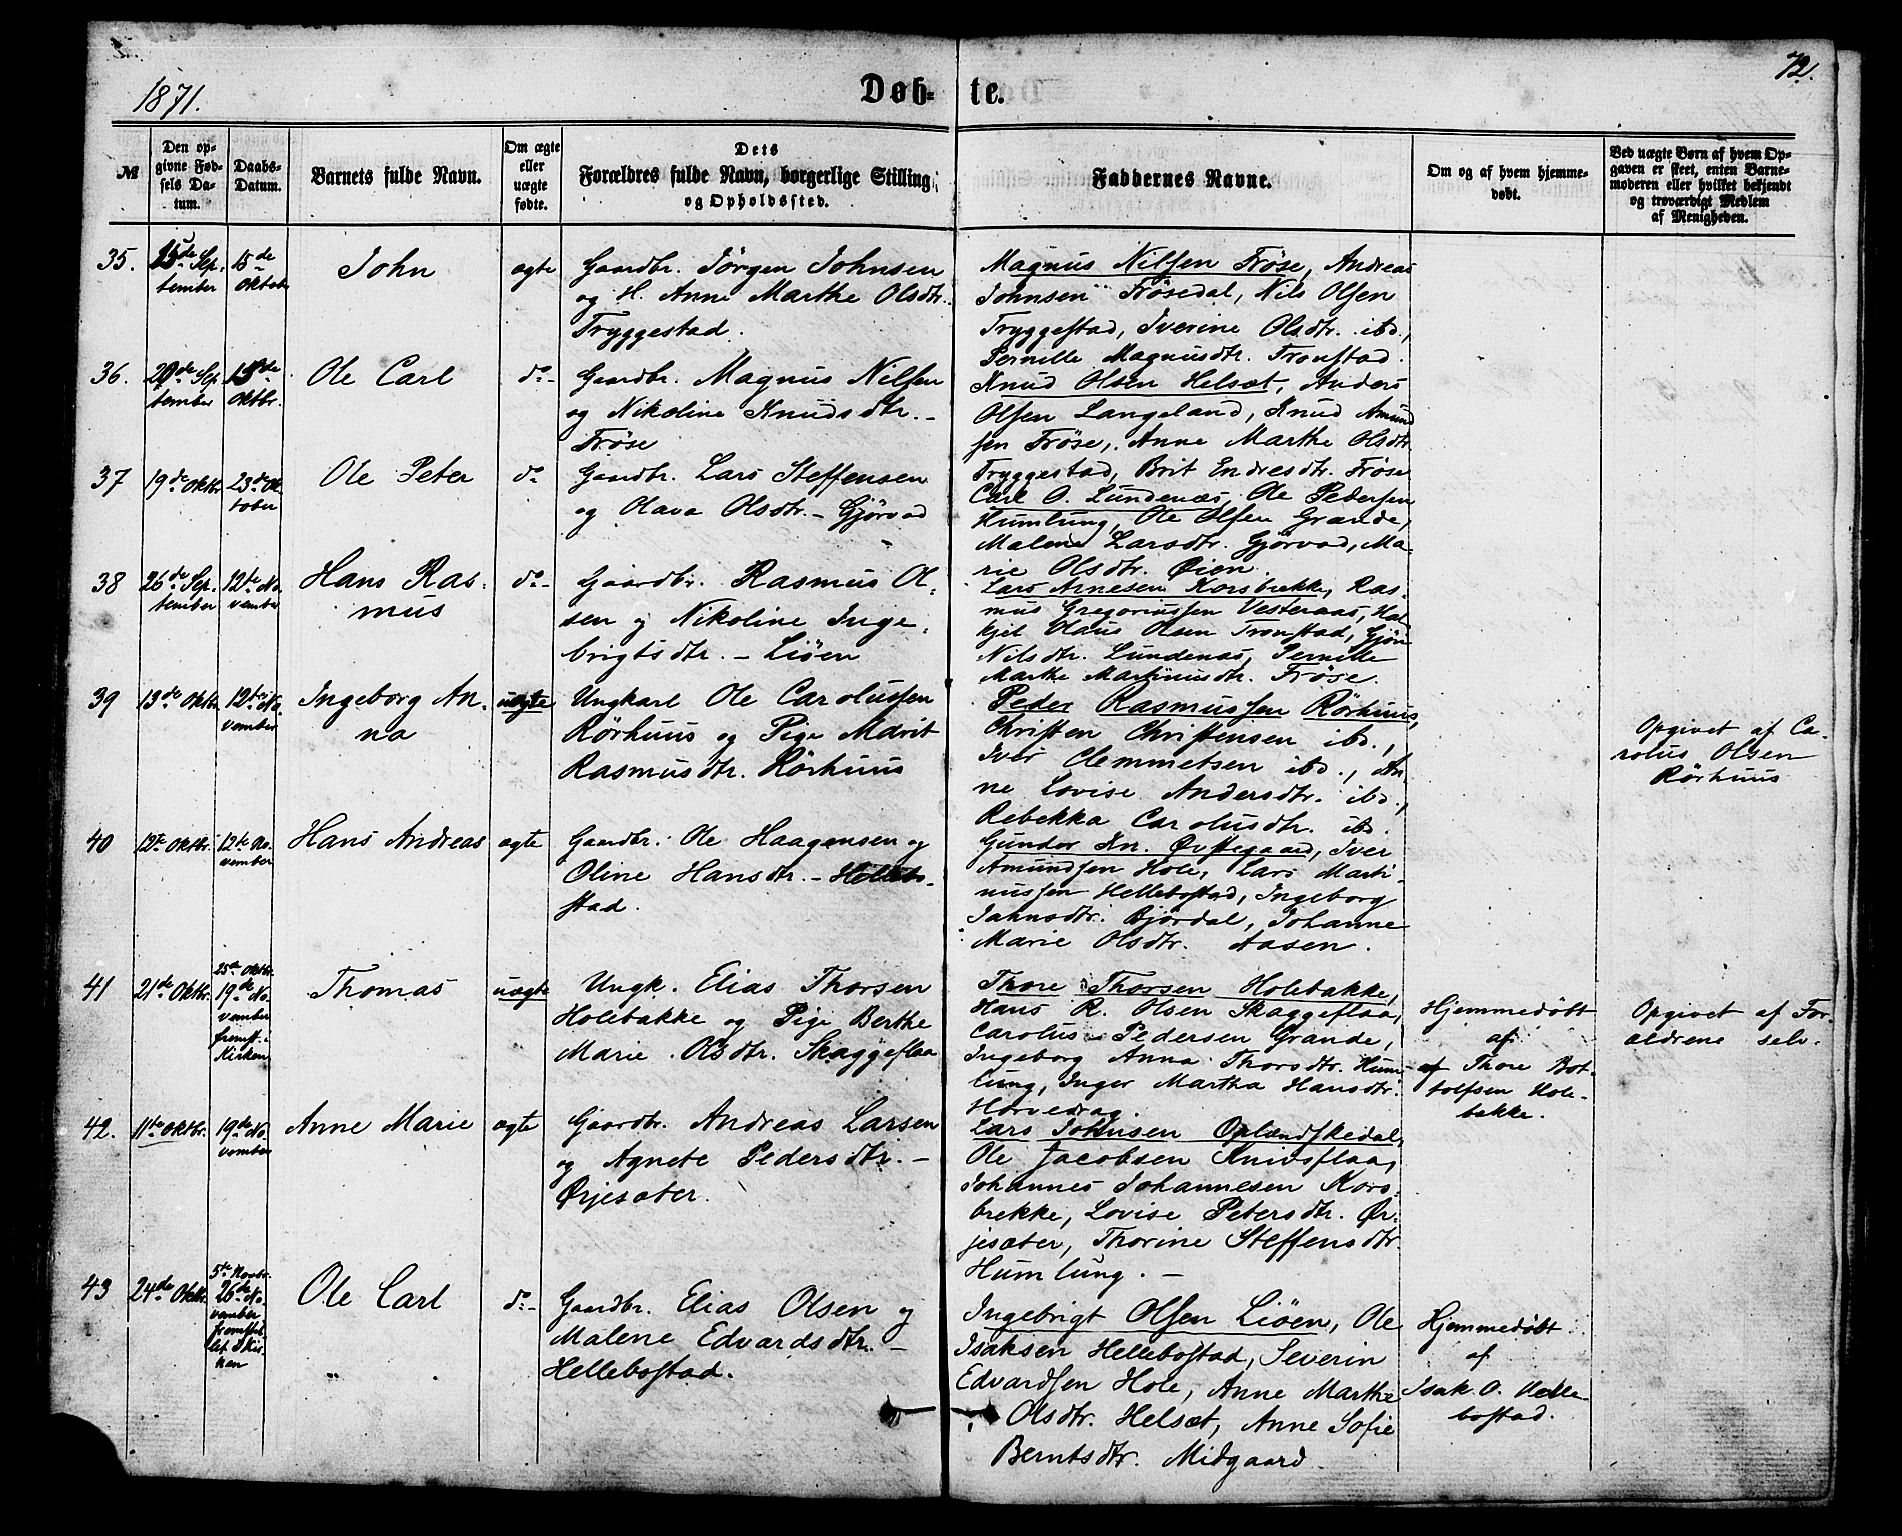 1871.
Døb-te.
72.
№
Den opgivne Fødsels Datum.
Daabs-Datum.
Barnets fulde Navn.
Om ægte eller uægte fødte.
Dets Forældres fulde Navn, borgerlige Stilling og Opholdssted.
Faddernes Navne.
Om og af hvem hjemmedøbt.
Ved uægte Børn af hvem Opgaven er skeet, enten Barnemoderen eller hvilket bekjendt og troværdigt Medlem af Menigheden.
35.
September
15de Oktober
John
ægte
Gaardbr. Jörgen Johnsen
og H. Anne Marthe Olsdtr.
Tryggestad.
Magnus Nilsen Fröse, Andreas
Johnsen Frösedal, Nils Olsen
Tryggestad, Iverine Olsdtr. ibd.,
Pernille Magnusdtr. Tronstad.
36.
20de September
15de Oktbr.
Ole Carl
do-
Gaardbr. Magnus Nilsen
og Nikoline Knudsdtr. -
Fröse
Knud Olsen Helsæt, Anders
Olsen Langeland, Knud Amund
sen Fröse, Anne Marthe Olsdtr.
Tryggestad, Brit Endresdtr. Fröse
37
19de Oktbr.
23de Oktober
Ole Peter
do
Gaardbr. Lars Steffensen
og Olava Olsdtr. - Gjörvad
Carl O. Lundenæs, Ole Pedersen
Humlung, Ole Olsen Grande,
Malene Larsdtr. Gjörvad, Ma-
rie Olsdtr. Øien.
38
26de September
12te November
Hans Ras-
mus
do-
Gaardbr. Rasmus Ol-
sen og Nikoline Inge-
brigtsdtr. - Liöen
Lars Arnesen Korsbrekke, Ras-
mus Gregoriussen Vesteraas, Hal
kjel Olaus Olsen Tronstad, Gjöri
Nilsdtr. Lundenæs, Pernille
Marthe Martinusdtr. Fröse.
39
13de Oktbr.
12te November
Ingeborg An-
na
uægte
Ungkarl Ole Carolussen
Rörhuus og Pige Marit
Rasmusdtr. Rörhuus
Peder Rasmussen Rörhuus,
Christen Christensen ibd.,
Iver Clemmetsen ibd., An-
ne Lovise Andersdtr. ibd.,
Rebekka Carolusdtr. ibd.
Opgivet af Ca-
rolus Olsen
Rörhuus
40
12te Oktbr.
12te November
Hans Andreas
ægte
Gaardbr. Ole Haagensen og
Oline Hansdtr. - Hellebo-
stad.
Gundor Kn. Øvstegaard, Iver
Amundsen Hole, Lars Marti-
nussen Hellebostad, Ingeborg
Jahnsdtr. Björdal, Johanne
Marie Olsdtr. Aasen.
41
21de Oktbr.
25de Oktbr.
19de November
fremst. i
Kirken
Thomas
uægte
Ungk. Elias Thorsen
Holebakke og Pige Berthe
Marie Olsdtr. Skaggeflaa
Thore Thorsen Holebakke,
Hans R. Olsen Skaggeflaa,
Carolus Pedersen Grande,
Ingeborg Anna Thorsdtr. Hum-
lung, Inger Martha Hansdtr.
Horvedrag.
Hjemmedöbt
af
af Thore Bot-
tolfsen Hole-
bakke.
Opgivet af For-
ældrene selv.
42.
11te Oktbr.
19de November
Anne Marie
ægte
Gaardbr. Andreas Larsen
og Agnete Pedersdtr. -
Ørjesæter.
Lars Johnsen Oplændskedal,
Ole Jacobsen Knivsflaa,
Johannes Johannesen Kors-
brekke, Lovise Petersdtr. Ør-
jesæter, Thorine Steffensdtr.
Humlung. -
43
24de Oktbr.
5te Novbr.
26de November
fremstil-
let i Kir-
ken
Ole Carl
do-
Gaardbr. Elias Olsen og
Malene Edvardsdtr. -
Hellebostad.
Ingebrigt Olsen Liöen, Ole
Isaksen Hellebostad, Severin
Edvardsen Hole, Anne Marthe
Olsdtr. Helsæt, Anne Sofie
Berntsdtr. Midgaard
Hjemmedöbt
af
Isak O. Helle-
bostad.